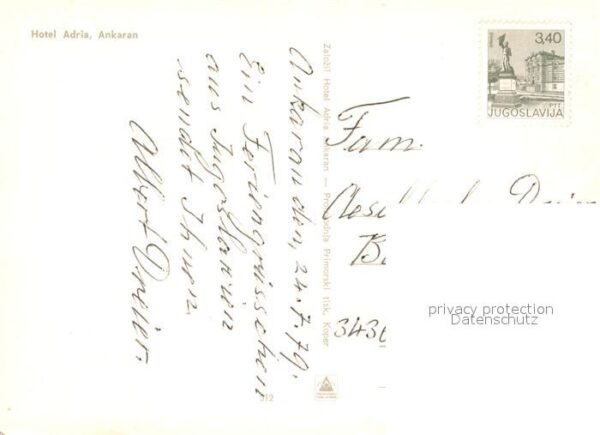 Hotel Adria, Ankaran
Ankaran den, 24.7.79.
Ein Feriengrüsschen
aus Jugoslawien
sendet Ihnen
Albert Dreier.
Založil Hotel Adria Ankaran — Proizvodnja Primorski tisk, Koper
312
3,40
PTT
JUGOSLAVIJA
Fam.
343
privacy protection
Datenschutz